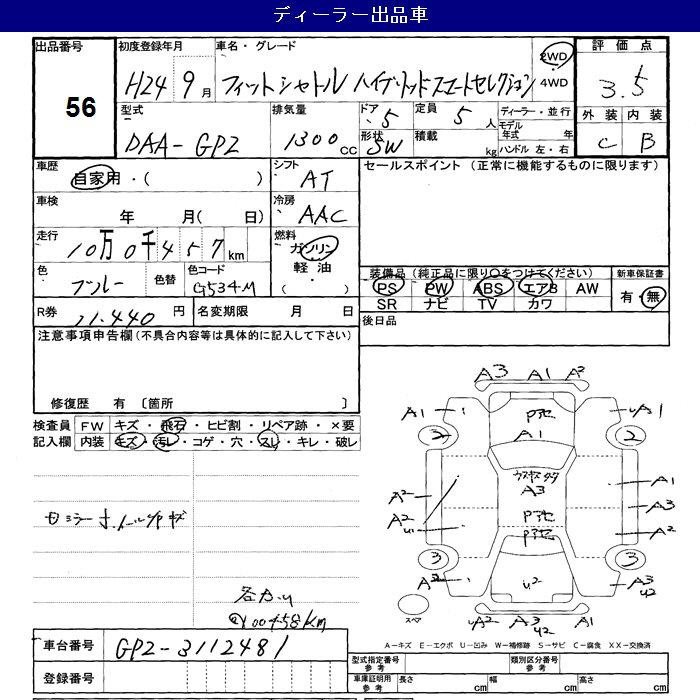 ディーラー出品車
出品番号 初度登録年月 車名・グレード 2WD 評価点
56 H24年 9月 フィットシャトル ハイブリッドスマートセレクション ・4WD 3.5
型式 排気量 ドア 定員 ディーラー・並行 外装 内装
DAA-GP2 1300cc 5 5人 モデル年式 年 C B
形状 SW 積載 kg ハンドル 左・右
車歴 シフト セールスポイント (正常に機能するものに限ります)
自家用・( ) AT
車検 冷房
年 月( 日) AAC
走行 燃料
10万0千457km ガソリン
軽油
・( )
色 色替 色コード 装備品 (純正品に限り○をつけてください) 新車保証書
ブルー G534M PS PW ABS エアB AW 有・無
SR ナビ TV カワ
R券 円 名変期限 月 日 後日品
11.440
注意事項申告欄 (不具合内容等は具体的に記入して下さい)
修復歴 有 〔箇所 〕
検査員 FW キズ・飛石・ヒビ割・リペア跡・×要
記入欄 内装 キズ・汚レ・コゲ・穴・スレ・キレ・破レ
100458km
車台番号 GP2-3112481
登録番号
A3 A1 A2
A1 uA1
3 2
A1
A3
A2 A1
A2 u1 A3
A2
3 3
A2 u2 A3 u2
スペア uA2 A3 u2 A1
A-キズ E-エクボ U-凹み W-補修跡 S-サビ C-腐食 XX-交換済
型式指定番号 参考 類別区分番号 参考
車庫証明用 参考 長さ cm 幅 cm 高さ cm